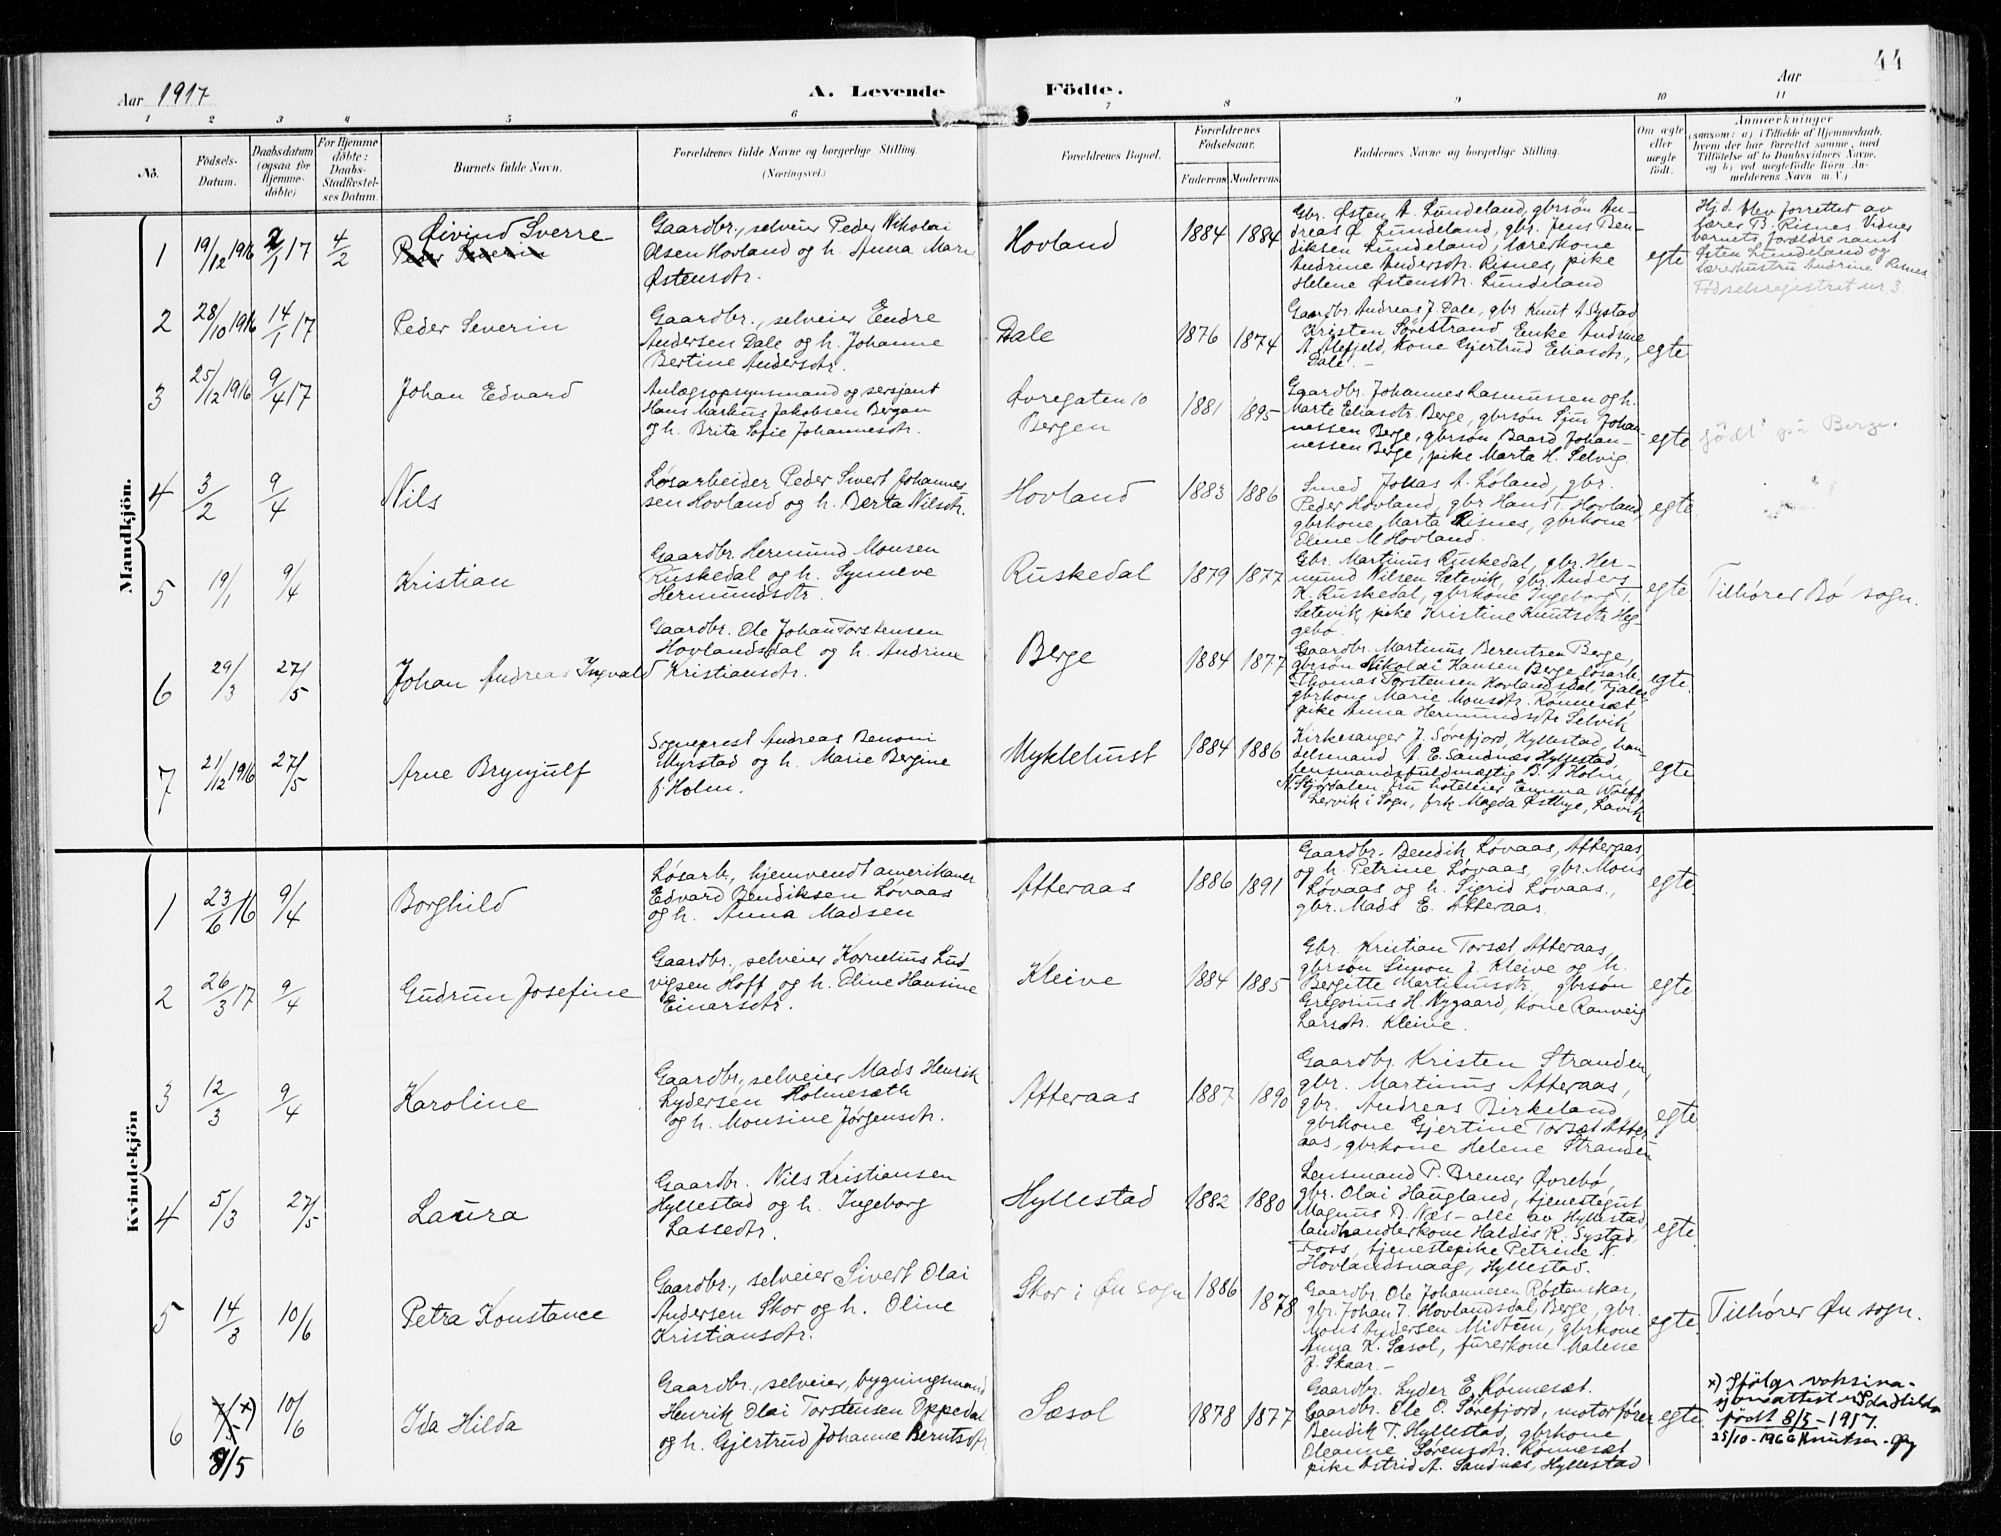 44
Aar 1917
A. Levende Födte.
Aar
1 2 3 4 5 6 7 8 9 10 11
No.
Födsels-Datum.
Daabsdatum (ogsaa for Hjemmedöbte)
For Hjemmedöbte: Daabs-Stadfæstelses Datum.
Barnets fulde Navn.
Forældrenes fulde Navne og borgerlige Stilling.
(Næringsvei.)
Forældrenes Bopæl.
Forældrenes Födselsaar.
Faderens Moderens
Faddernes Navne og borgerlige Stilling.
Om ægte eller uægte födt.
Anmærkninger
(saasom: a) i Tilfælde af Hjemmedaab,
hvem der har forrettet samme, med
Tilföielse af to Daabsvidners Navne,
og b) ved uægtefödte Börn An-
melderens Navn m. V.)
Mandkjön.
1 19/12 1916 2/1 17 4/2
Øivind Sverre
Peder Severin
Gaardbr., selveier Peder Nikolai
Olsen Hovland og h. Anna Marie
Østensdtr.
Hovland 1884 1884
Gbr. Østen A. Lundeland, gbrsøn An-
dreas Ø. Lundeland, gbr. Jens Ben-
diksen Lundeland, lærerkone
Andrine Andersdtr. Risnes, pike
Helene Østensdtr. Lundeland
egte
Hjd. blev forrettet av
lærer B. Risnes. Vidner
barnets forældre samt
Østen Lundeland og
lærerhustru Andrine Risnes
Fødselsregistret nr. 3.
2 28/10 1916 14/1 17
Peder Severin
Gaardbr., selveier Endre
Andersen Dale og h. Johanne
Bertine Andersdtr.
Dale 1876 1874
Gaardbr Andreas J. Dale, gbr Knut A. Systad
Kristen Sørestrand, Enke Andrine
A. Alefjeld, Kone Gjertrud Eliasdtr,
Dale. -
egte
3 25/12 1916 9/4 17
Johan Edvard
Anlægsopsynsmand og sersjant
Hans Markus Jakobsen Bergan
og h. Brita Sofie Johannesdtr.
Øvregaten 10
Bergen
1881 1895
Gaardbr. Johannes Rasmussen og h.
Marte Eliasdtr. Berge, gbrsøn Sjur Johan-
nessen Berge, gbrsøn Baard Johan-
nessen Berge, pike Marta H. Selvig
egte
født på Berge.
4 3/2 9/4
Nils
Løsarbeider Peder Sivert Johannes
sen Hovland og h. Berta Nilsdtr.
Hovland 1883 1886
Smed Johas A. Løland, gbr.
Peder Hovland, gbr Hans T. Hovland,
gbrkone Marta Risnes, gbrkone
Oline M Hovland.
egte
5 19/1 9/4
Kristian
Gaardbr. Hermund Monsen
Ruskedal og h. Synneve
Hermundsdtr.
Ruskedal 1879 1877
Gbr. Martinus Ruskedal, gbr. Her-
mund Nilsen Sætevik, gbr. Anders
K. Ruskedal, gbrkone Ingeborg T.
Sætevik, pike Kristine Knutsdtr Heg-
gebø.
egte
Tilhører Bø sogn.
6 29/3 27/5
Johan Andreas Ingvald
Gaardbr. Ole Johan Torstensen
Hovlandsdal og h. Andrine
Kristiansdtr.
Berge 1884 1877
Gaardbr. Martinus Berentsen Berge,
gbrsøn Nikolai Hansen Berge, løsarb.
Thomas Torstensen Hovlandsdal, Fjaler,
gbrkone Marie Monsdtr. Rønneset,
pike Anna Hermundsdtr Selvik
egte
7 21/12 1916 27/5
Arne Brynjulf
Sogneprest Andreas Benoni
Myrstad og h. Marie Bergine
f. Holm.
Myklebust 1884 1886
Kirkesanger J. Sørefjord, Hyllestad, han-
delsmand A. E. Sandnæs Hyllestad,
lensmandsfuldmægtig B. A Holm,
N. Stjørdalen, fru hoteleier Emma Wolff,
Lervik i Sogn, frk Magda Østbye, Lavik
egte
Kvindekjön
1 23/6 16 9/4
Borghild
Løsarb., hjemvendt amerikaner
Edvard Bendiksen Løvaas
og h. Anna Madsen
Atteraas 1886 1891
Gaardbr. Bendik Løvaas, Atteraas,
og h. Petrine Løvaas, gbr. Mons
Løvaas og h. Sigrid Løvaas,
gbr. Mads E. Atteraas.
egte
2 26/3 17 9/4
Gudrun Josefine
Gaardbr., selveier Kornelius Lud-
vigsen Hoff og h. Oline Hansine
Einarsdtr.
Kleive 1884 1885
Gbr. Kristian Torsæt Atteraas,
gbrsøn Simon J. Kleive og h.
Bergitte Martinusdtr, gbrsøn
Gregorius H. Nygaard, kone Ranveig
Larsdtr. Kleive.
egte
3 12/3 9/4
Karoline
Gaardbr., selveier Mads Henrik
Lydersen Holmesæth
og h. Monsine Jørgensdtr.
Atteraas 1887 1890
Gaardbr. Kristen Stranden,
gbr. Martinus Atteraas,
gbr. Andreas Birkeland,
gbrkone Gjertine Torsæt Atter
aas, gbrkone Helene Stranden
egte
4 5/3 27/5
Laura
Gaardbr. Nils Kristiansen
Hyllestad og h. Ingeborg
Lassedtr.
Hyllestad 1882 1880
Lensmand P. Bremer Øvrebø,
gbr. Olai Haugland, tjenestegut
Magnus D. Næs - alle av Hyllestad,
landhandlerkone Haldis R. Systad,
Foss, tjenestepike Petrine N.
Hovlandsvaag, Hyllestad.
egte
5 14/3 10/6
Petra Konstance
Gaardbr., selveier Sivert Olai
Andersen Skor og h. Oline
Kristiansdtr.
Skor i Øn sogn 1886 1878
Gaardbr. Ole Johannesen Røstenskar,
gbr. Johan T. Hovlandsdal, Berge, gbr.
Mons Andersen Midtun, gbrkone
Anna K. Sæsol, furerkone Malene
J. Skaar. -
egte.
Tilhører Øn sogn.
6 x) 8/5 10/6
Ida Hilda
Gaardbr., selveier, bygningsmand
Henrik Olai Torstensen Oppedal
og h. Gjertrud Johanne Berntsdtr
Sæsol 1878 1877
Gaardbr. Lyder E. Rønneset.
Gaardbr. Ole O. Sørefjord, motorfører
Bendik T. Hyllestad, gbrkone
Oleanne Sørensdtr. Rønneset
pike Astrid A. Sandnæs, Hyllestad
egte.
x) Ifølge vaksina-
sjonsattest er Ida Hilda
født 8/5 - 1917.
25/10 - 1966 Knutsen - spr